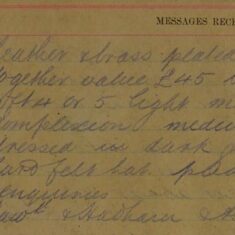 MESSAGES RECE
leather & brass plated
together value £45
5ft 4 or 5 light m
complexion medi
dressed in dark g
hard felt hat plea
enquiries